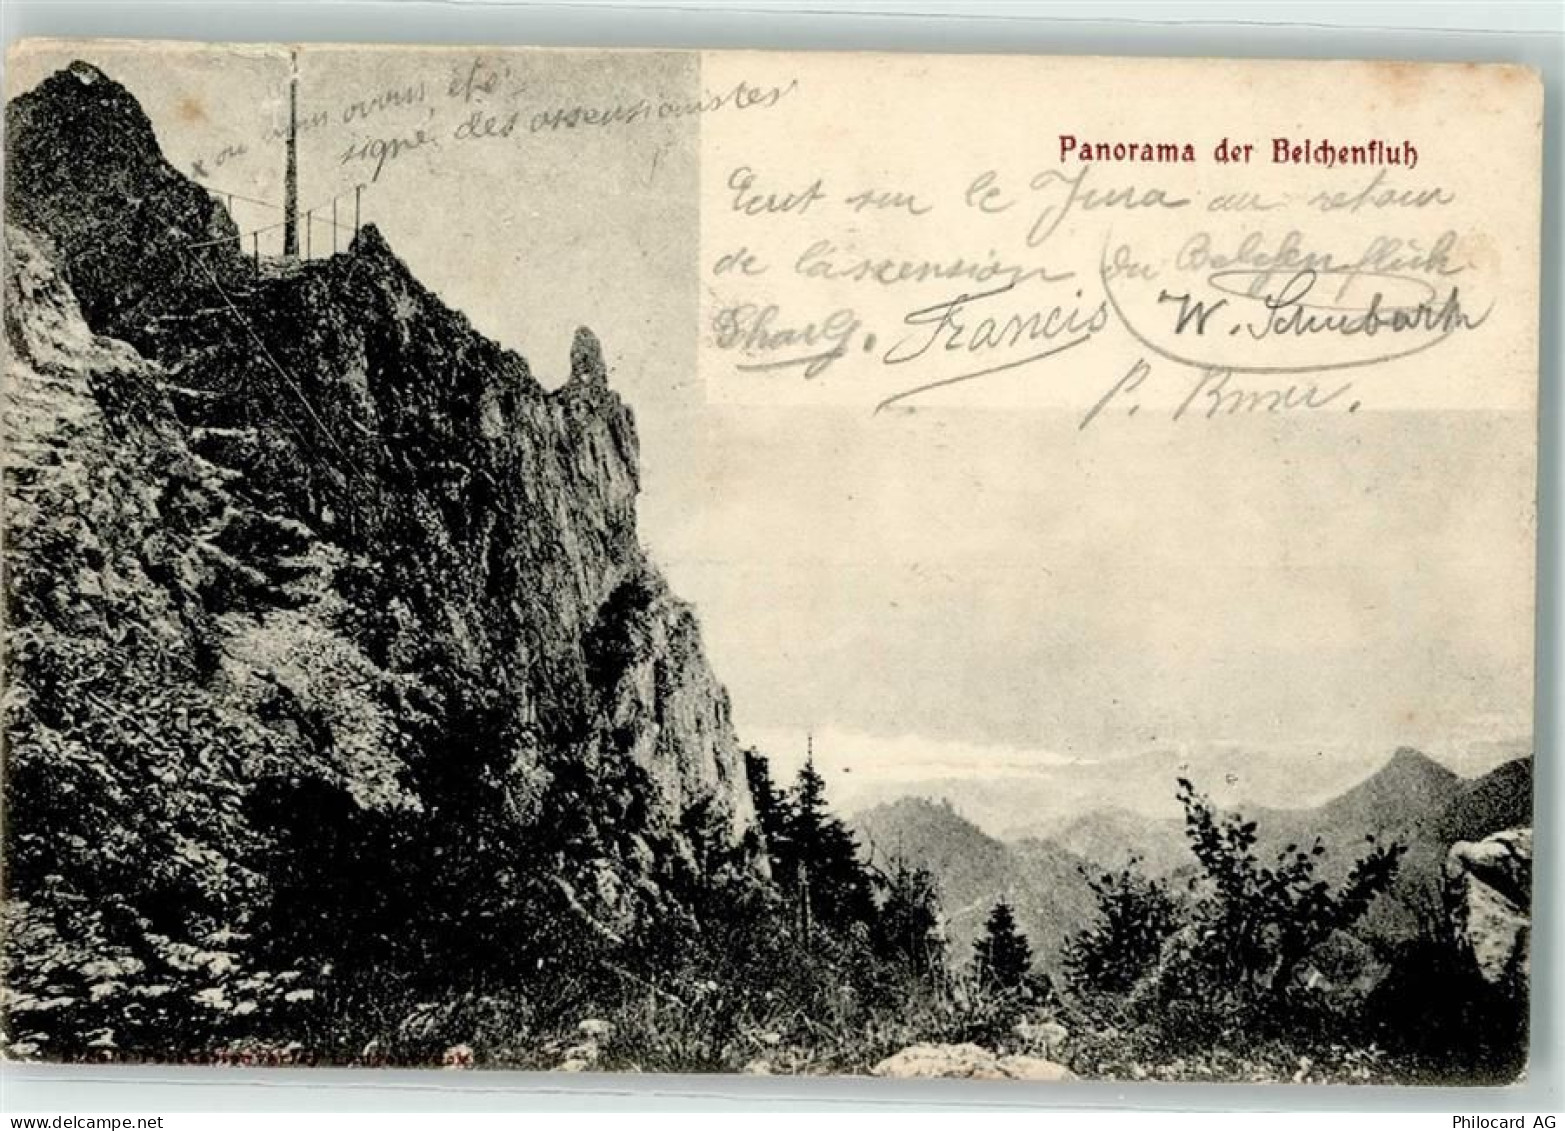 × ou nous avons été
signé des assensionistes
Panorama der Belchenfluh
Ecrit sur le Jura au retour
de l'ascension du Belchenflüh
Charly. Francis W. Schubarth
P.
Philocard AG